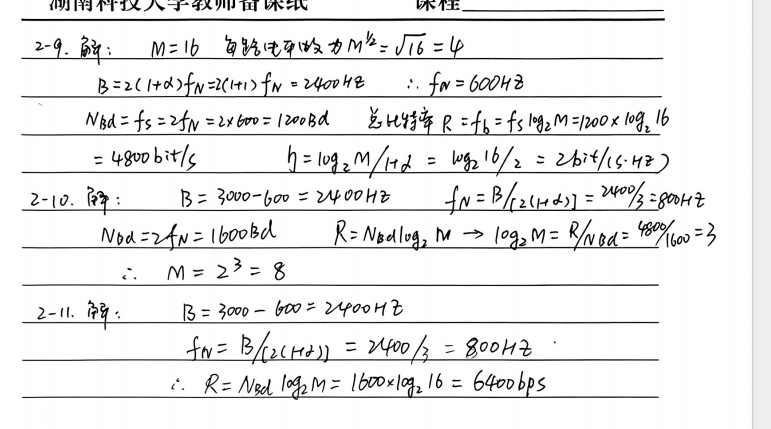 湖南科技大学教师备课纸 课程
2-9. 解: M=16 每路电平数为M^½=√16=4
B=2(1+α)f_N=2(1+1)f_N=2400HZ ∴ f_N=600HZ
N_Bd=f_s=2f_N=2×600=1200Bd 总比特率 R=f_b=f_s log₂M=1200×log₂16
=4800bit/s η=log₂M/1+α=log₂16/2=2bit/(s·HZ)
2-10. 解: B=3000-600=2400HZ f_N=B/[2(1+α)]=2400/3=800HZ
N_Bd=2f_N=1600Bd R=N_Bd log₂M → log₂M=R/N_Bd=4800/1600=3
∴ M=2³=8
2-11. 解: B=3000-600=2400HZ
f_N=B/[2(1+α)]=2400/3=800HZ
∴ R=N_Bd log₂M=1600×log₂16=6400bps